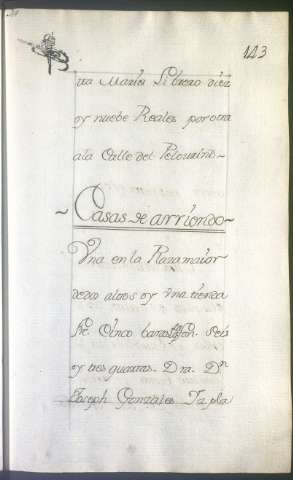 143
ña Maria Librero diez
oy nuebe Reales por otra
ala Calle del Pelourino~
~Casas de arriendo~
Vna en la Plaza maior
de dos altos oy vna tienda
de Cinco baras seis
oy tres quartas. Dra. Dn
Joseph Gonzales Tapla